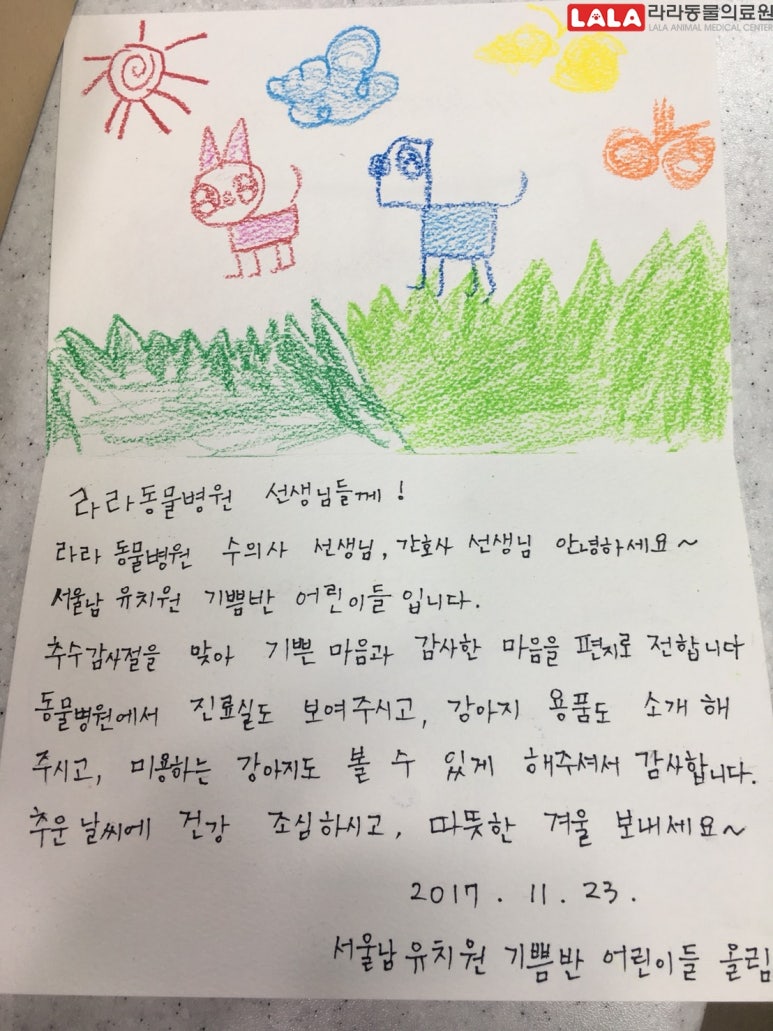 LALA 라라동물의료원
LALA ANIMAL MEDICAL CENTER
라라동물병원 선생님들께!
라라 동물병원 수의사 선생님, 간호사 선생님 안녕하세요~
서울남 유치원 기쁨반 어린이들 입니다.
추수감사절을 맞아 기쁜 마음과 감사한 마음을 편지로 전합니다
동물병원에서 진료실도 보여주시고, 강아지 용품도 소개 해
주시고, 미용하는 강아지도 볼 수 있게 해주셔서 감사합니다.
추운 날씨에 건강 조심하시고, 따뜻한 겨울 보내세요~
2017. 11. 23.
서울남 유치원 기쁨반 어린이들 올림